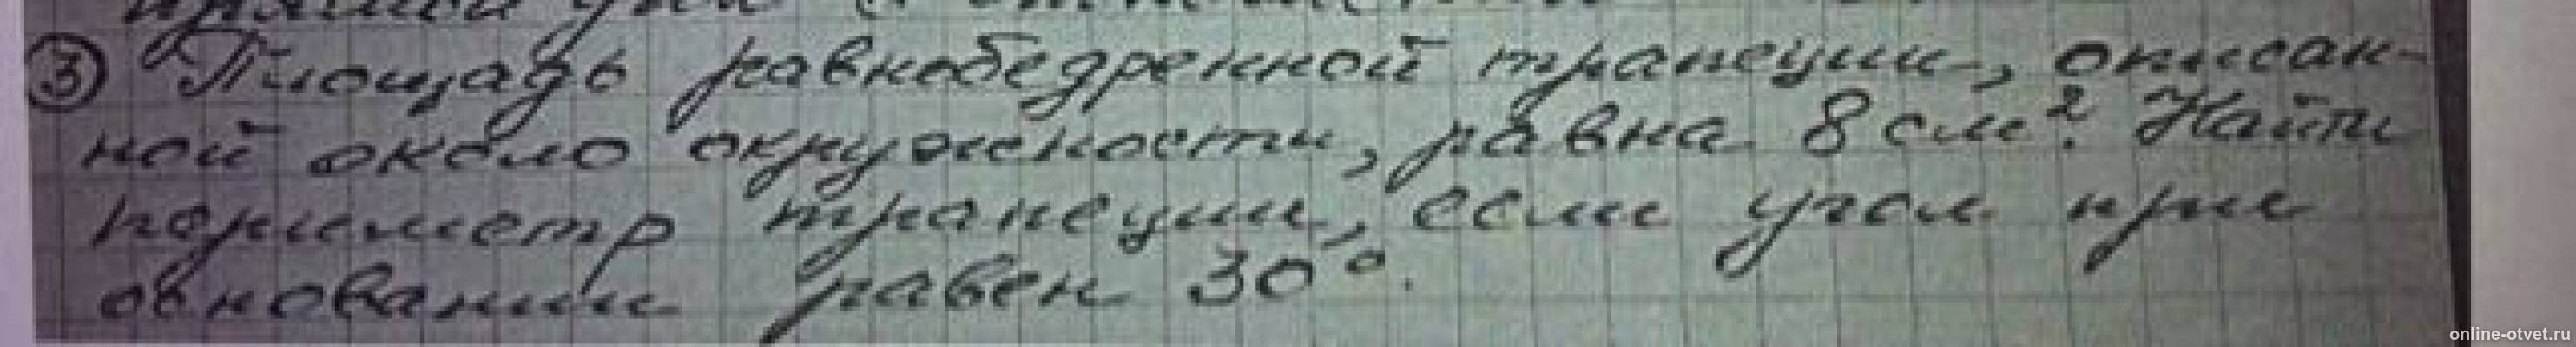 ③ Площадь равнобедренной трапеции, описан-
ной около окружности, равна 8 см². Найти
периметр трапеции, если угол при
основании равен 30°.
online-otvet.ru